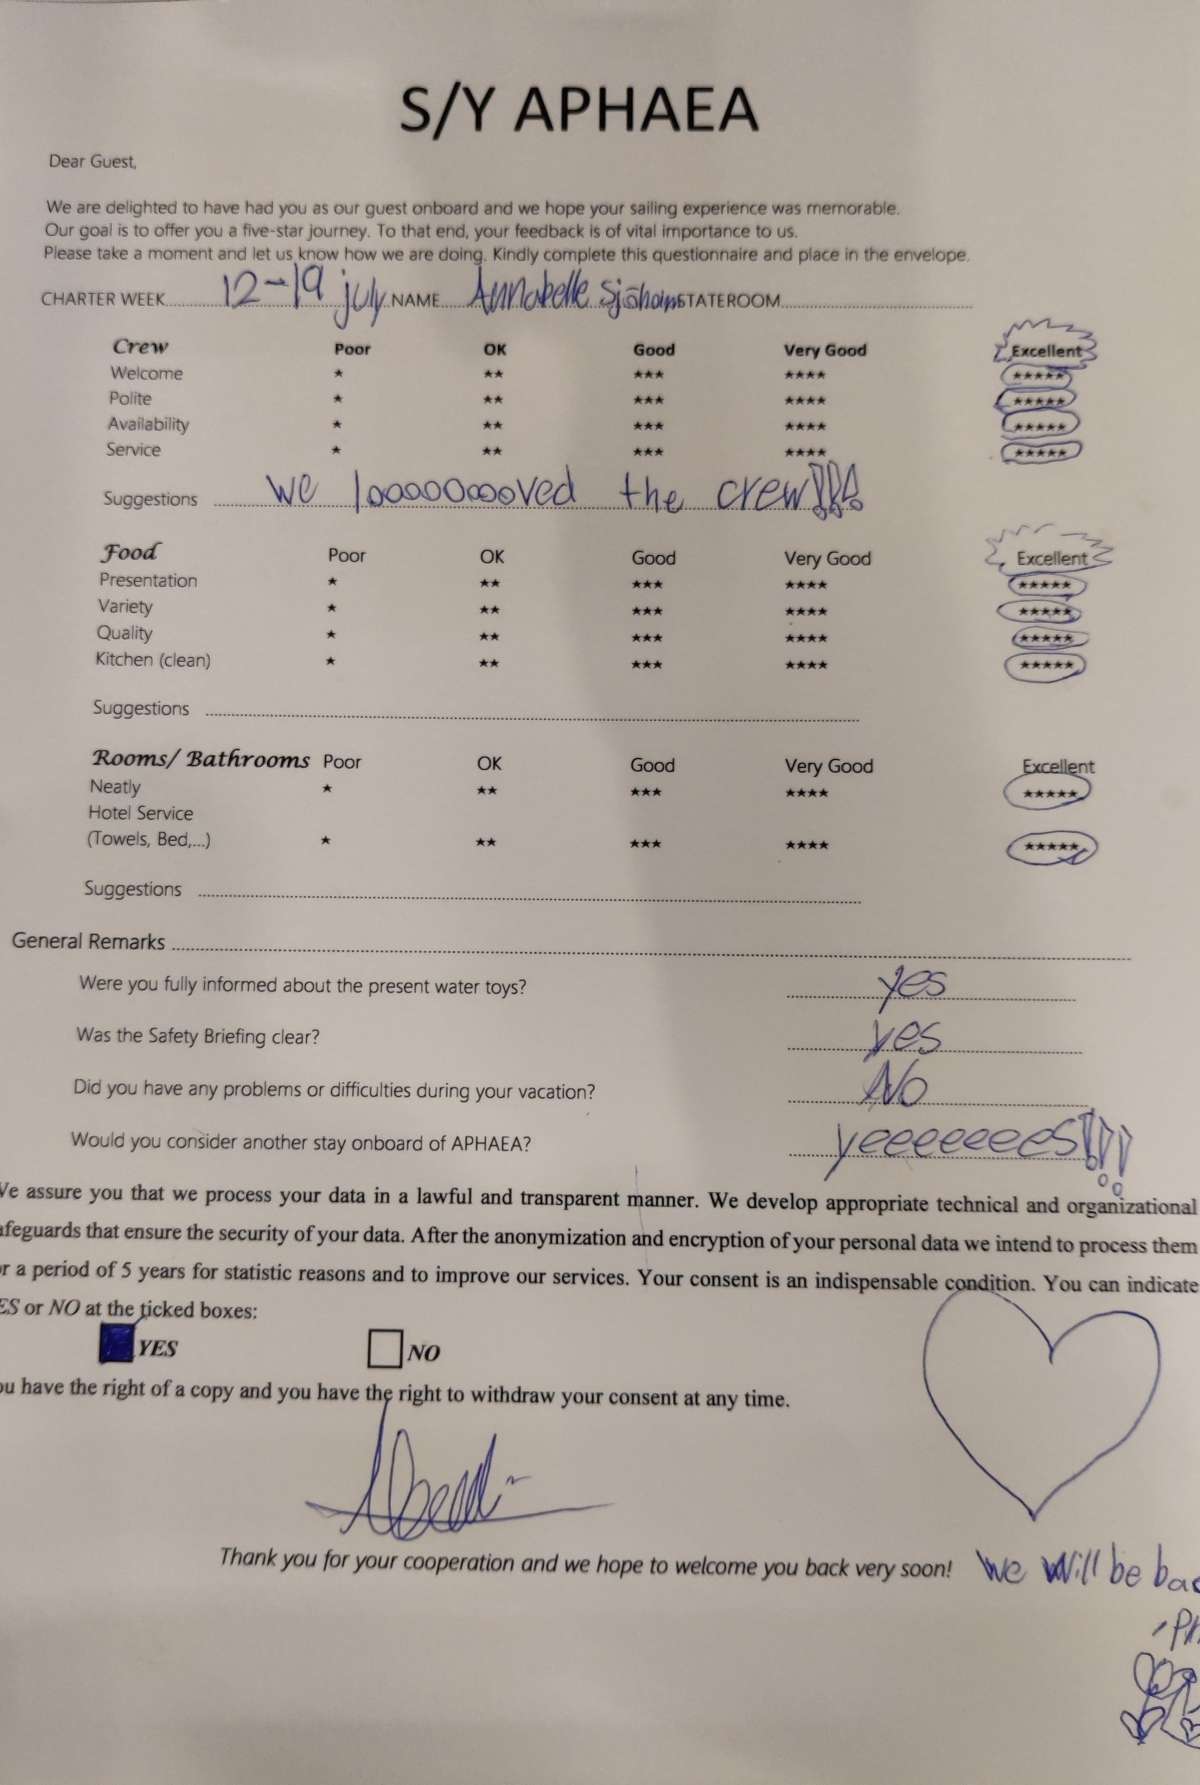 S/Y APHAEA
Dear Guest,
We are delighted to have had you as our guest onboard and we hope your sailing experience was memorable.
Our goal is to offer you a five-star journey. To that end, your feedback is of vital importance to us.
Please take a moment and let us know how we are doing. Kindly complete this questionnaire and place in the envelope.
CHARTER WEEK 12-19 july NAME Annabelle STATEROOM
Crew Poor OK Good Very Good Excellent
Welcome ★ ★★ ★★★ ★★★★ ★★★★★
Polite ★ ★★ ★★★ ★★★★ ★★★★★
Availability ★ ★★ ★★★ ★★★★ ★★★★★
Service ★ ★★ ★★★ ★★★★ ★★★★★
Suggestions we looooooooved the crew!!!
Food Poor OK Good Very Good Excellent
Presentation ★ ★★ ★★★ ★★★★ ★★★★★
Variety ★ ★★ ★★★ ★★★★ ★★★★★
Quality ★ ★★ ★★★ ★★★★ ★★★★★
Kitchen (clean) ★ ★★ ★★★ ★★★★ ★★★★★
Suggestions
Rooms/ Bathrooms Poor OK Good Very Good Excellent
Neatly ★ ★★ ★★★ ★★★★ ★★★★★
Hotel Service
(Towels, Bed,...) ★ ★★ ★★★ ★★★★ ★★★★★
Suggestions
General Remarks
Were you fully informed about the present water toys? yes
Was the Safety Briefing clear? yes
Did you have any problems or difficulties during your vacation? No
Would you consider another stay onboard of APHAEA? yeeeeeees!!!
We assure you that we process your data in a lawful and transparent manner. We develop appropriate technical and organizational
afeguards that ensure the security of your data. After the anonymization and encryption of your personal data we intend to process them
or a period of 5 years for statistic reasons and to improve our services. Your consent is an indispensable condition. You can indicate
ES or NO at the ticked boxes:
YES NO
ou have the right of a copy and you have the right to withdraw your consent at any time.
Thank you for your cooperation and we hope to welcome you back very soon! We will be bac